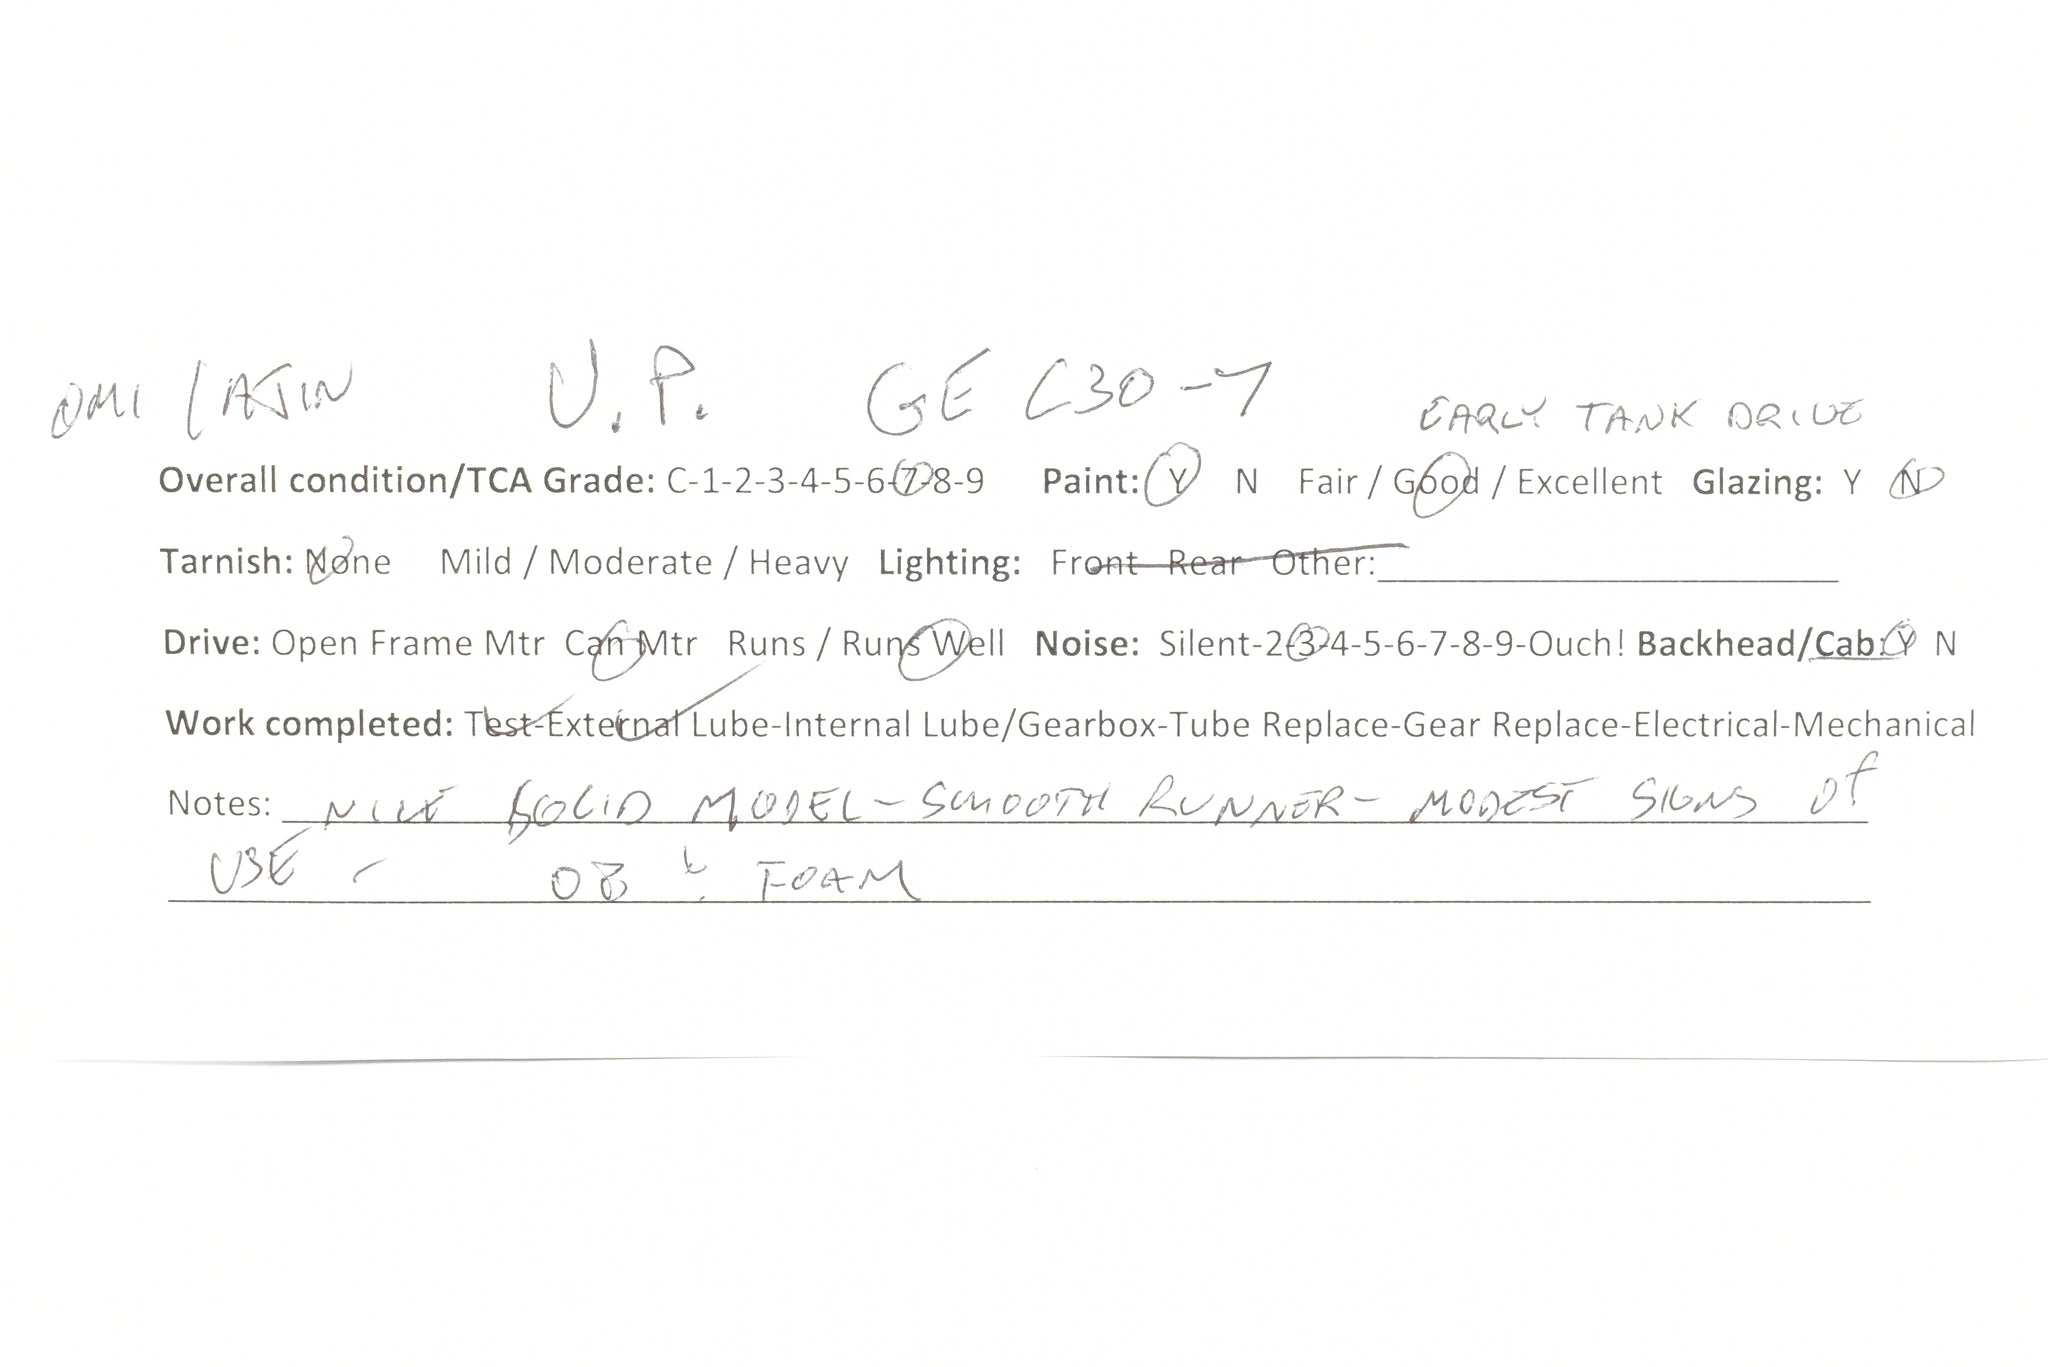 OMI / AJIN U.P. GE C30-7 EARLY TANK DRIVE
Overall condition/TCA Grade: C-1-2-3-4-5-6-7-8-9 Paint: Y N Fair / Good / Excellent Glazing: Y N
Tarnish: None Mild / Moderate / Heavy Lighting: Front Rear Other:
Drive: Open Frame Mtr Can Mtr Runs / Runs Well Noise: Silent-2-3-4-5-6-7-8-9-Ouch! Backhead/Cab: Y N
Work completed: Test-External Lube-Internal Lube/Gearbox-Tube Replace-Gear Replace-Electrical-Mechanical
Notes: NICE SOLID MODEL - SMOOTH RUNNER - MODEST SIGNS OF
USE - OB & FOAM